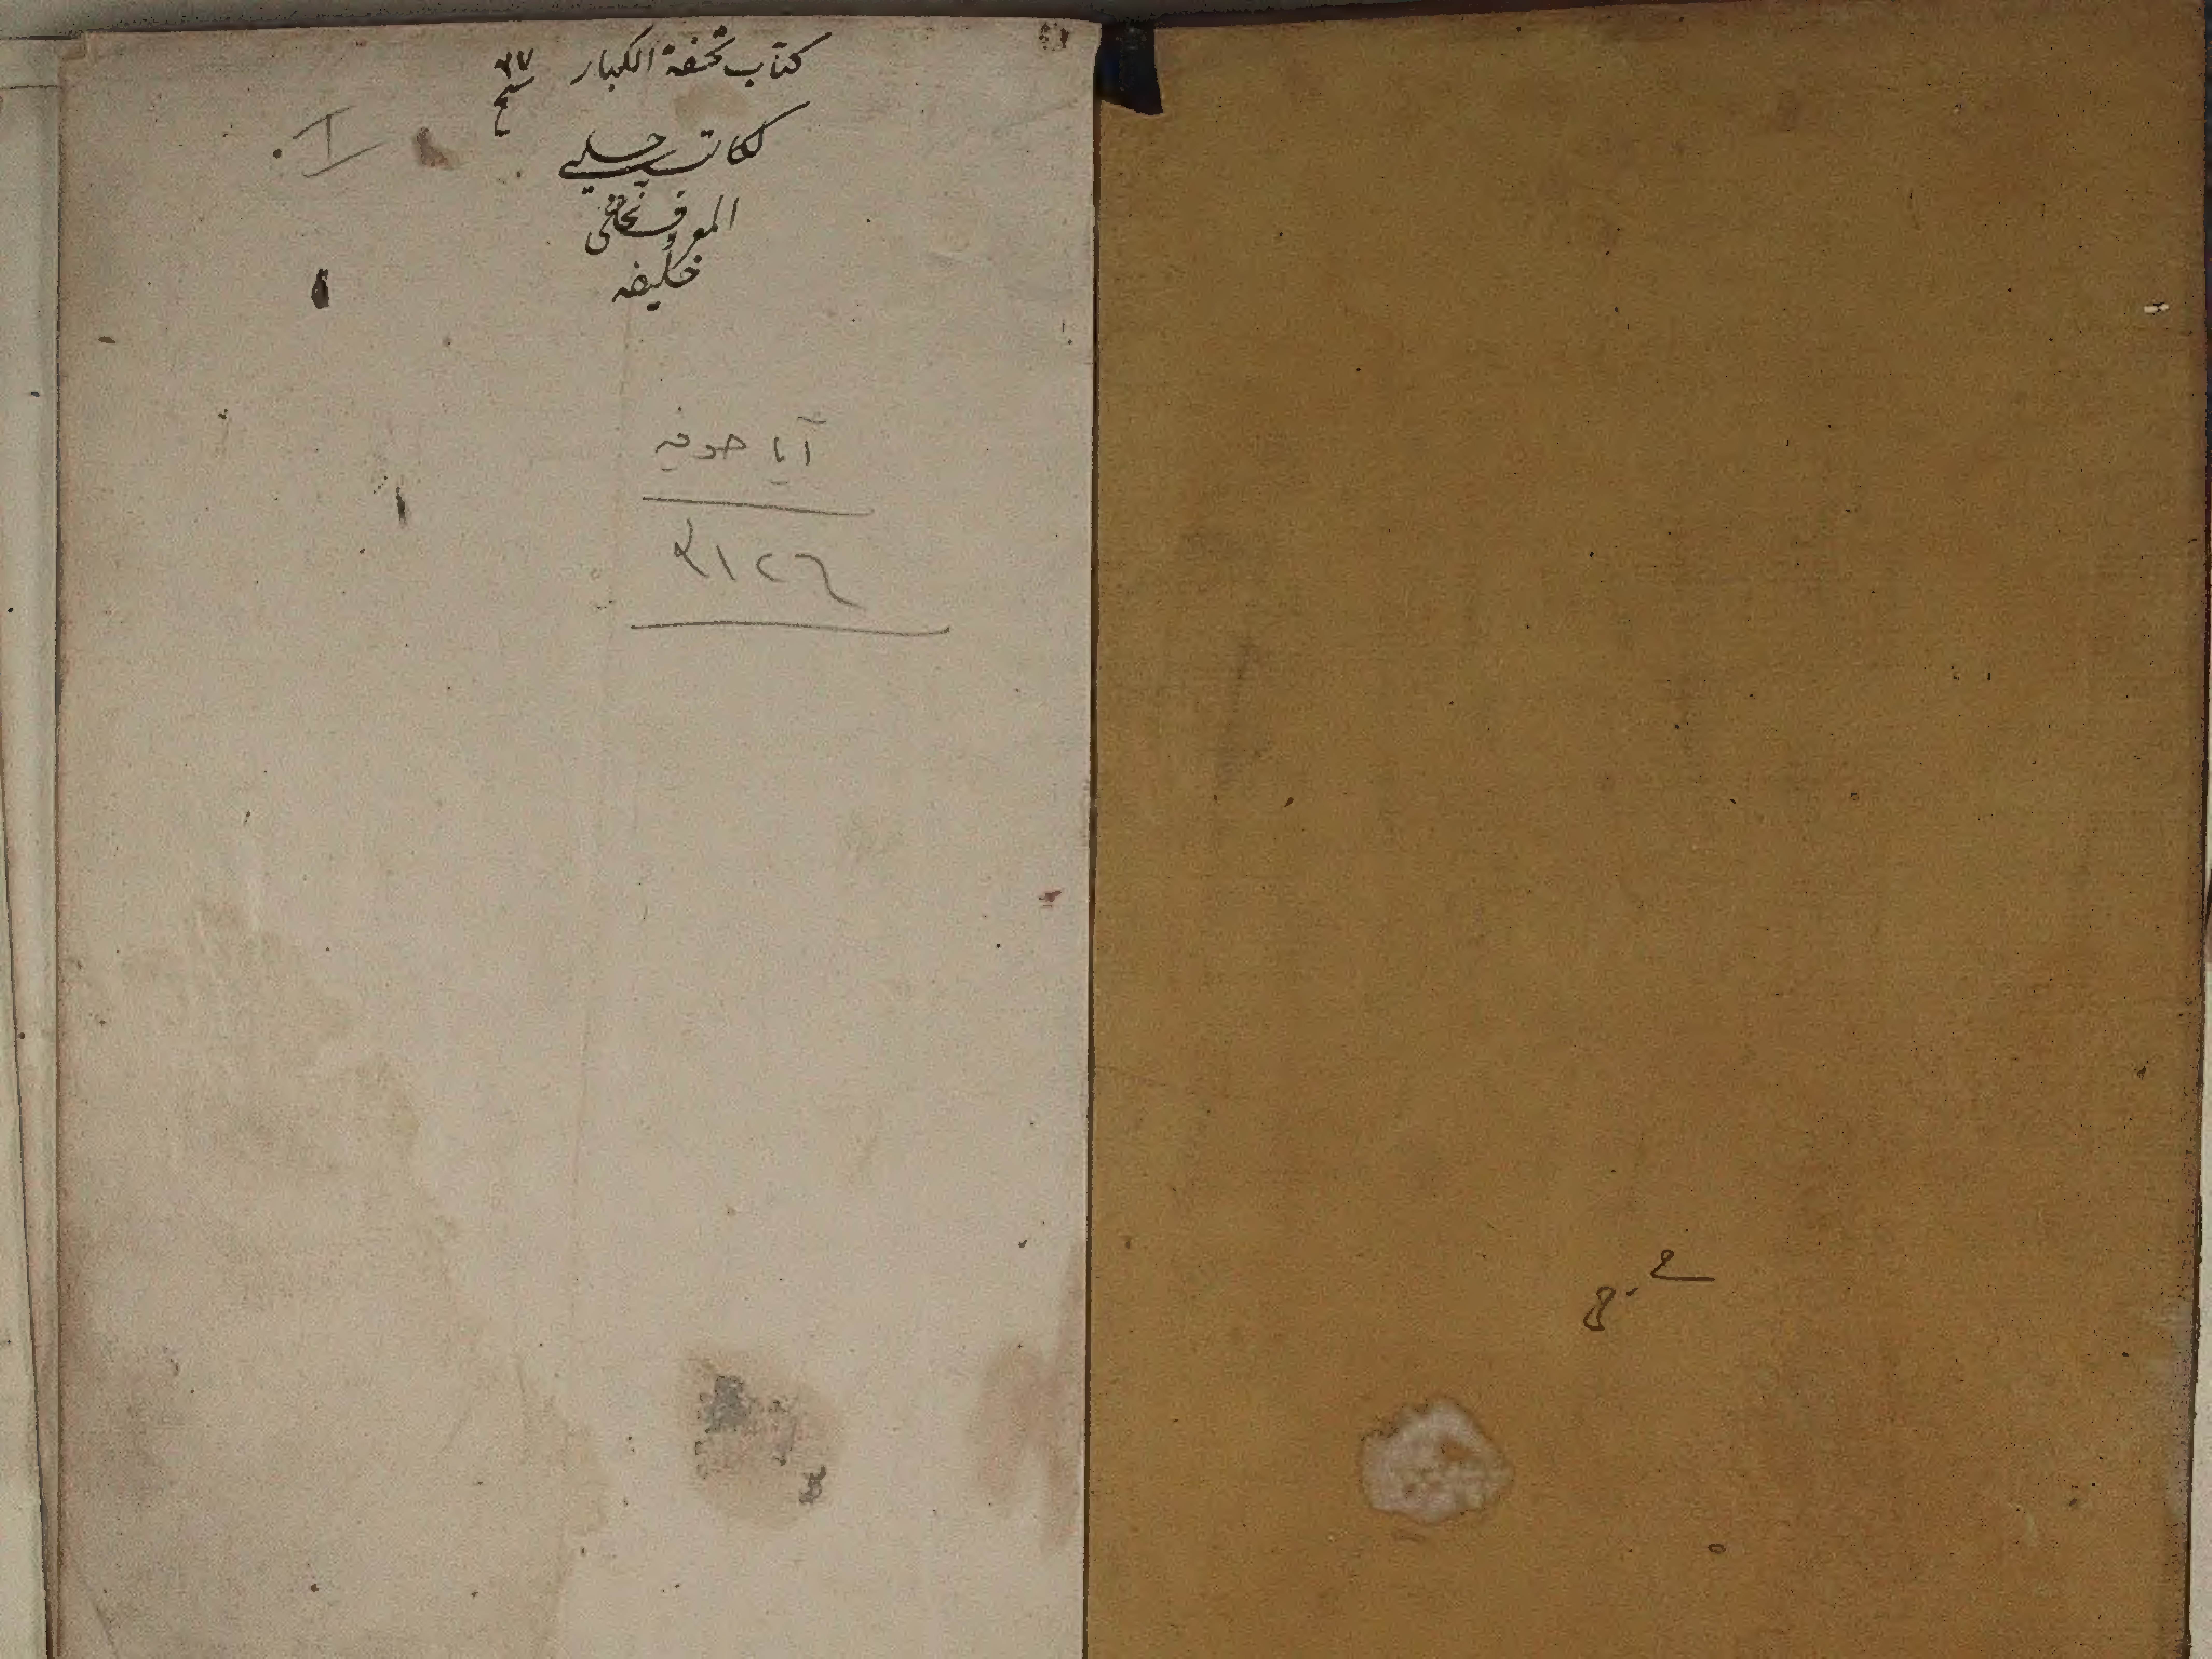 كتاب تحفة الكبار ٧٧
لكاتب چلبي
المعروف بحاجى
خليفه
آيا صوفيه
٣١٢٦